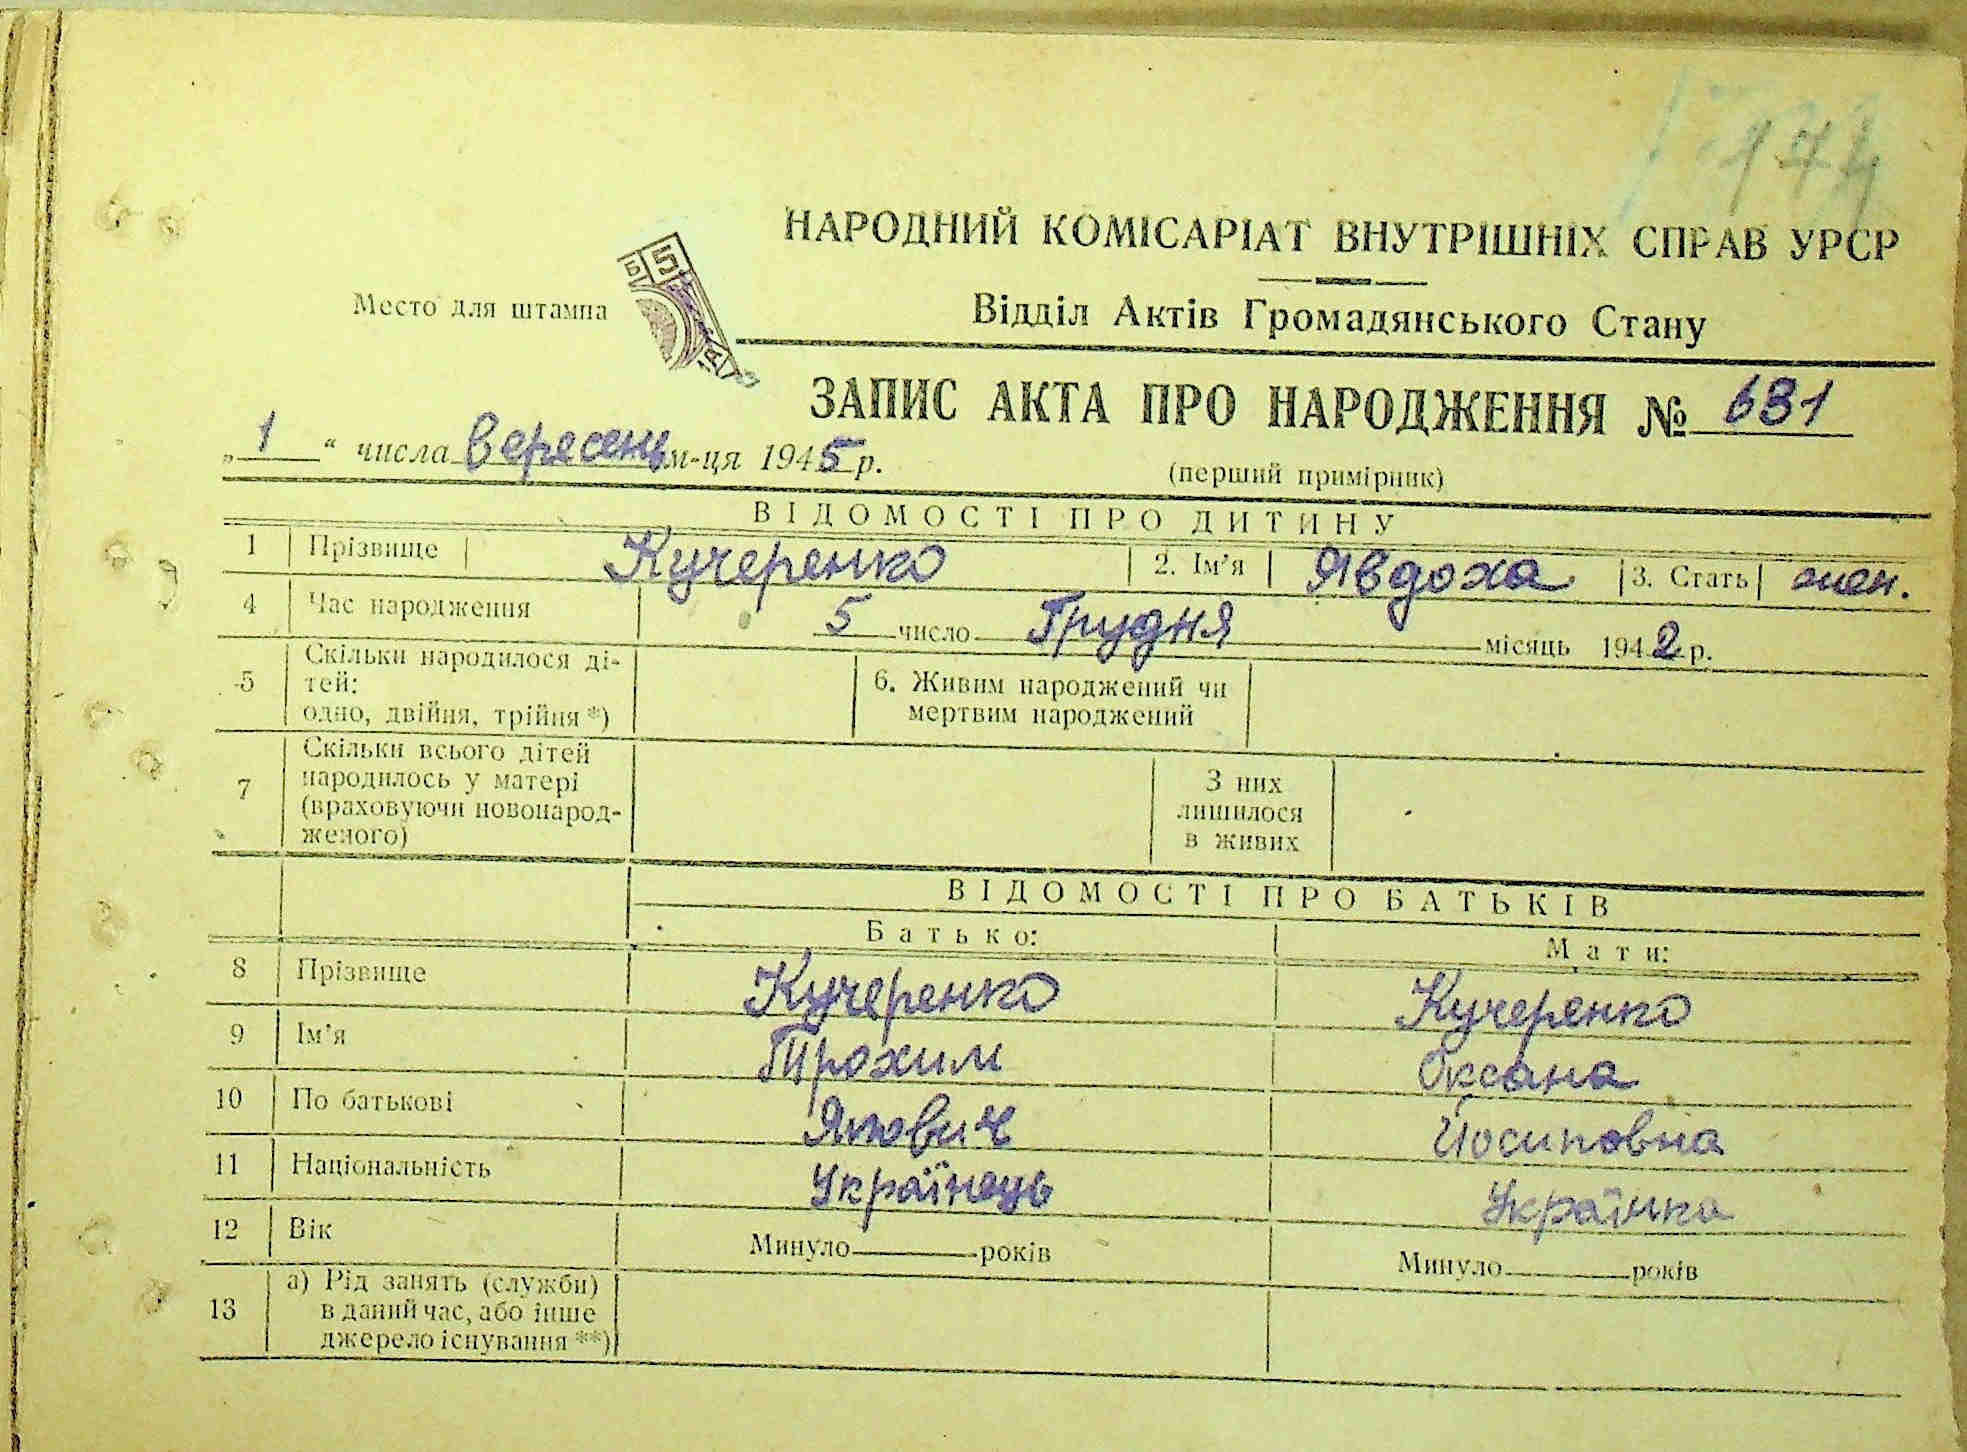 174
НАРОДНИЙ КОМІСАРІАТ ВНУТРІШНІХ СПРАВ УРСР
Место для штампа
Відділ Актів Громадянського Стану
ЗАПИС АКТА ПРО НАРОДЖЕННЯ № 631
„ 1 “ числа вересень м-ця 1945 р.
(перший примірник)
ВІДОМОСТІ ПРО ДИТИНУ
1 Прізвище Кучеренко 2. Ім’я Явдоха 3. Стать жен.
4 Час народження 5 число Грудня місяць 1942 р.
5 Скільки народилося ді-
тей:
одно, двійня, трійня *)
6. Живим народжений чи
мертвим народжений
7 Скільки всього дітей
народилось у матері
(враховуючи новонарод-
женого)
З них
лишилося
в живих
ВІДОМОСТІ ПРО БАТЬКІВ
Батько: Мати:
8 Прізвище Кучеренко Кучеренко
9 Ім’я Трохим Оксана
10 По батькові Якович Йосиповна
11 Національність Українець Українка
12 Вік Минуло років Минуло років
13 а) Рід занять (служби)
в даний час, або інше
джерело існування **)